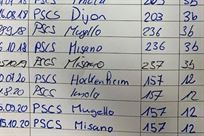 08.18 PSCS Dijon 203 36
9.18 PSCS Mugello 236 36
10.18 PSCS Misano 236 36
PSCS Misano 257 36
09.20 PSCS Hockenheim 157 12
PSCS Imola 157 12
09.20 PSCS Mugello 157 12
10.20 PSCS Misano 157 12